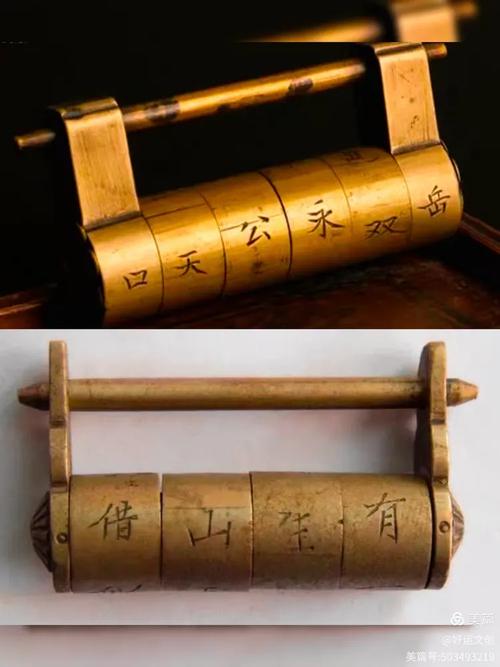 口天公永双岳
借山生有
美篇
@好运文创
美篇号:503493219